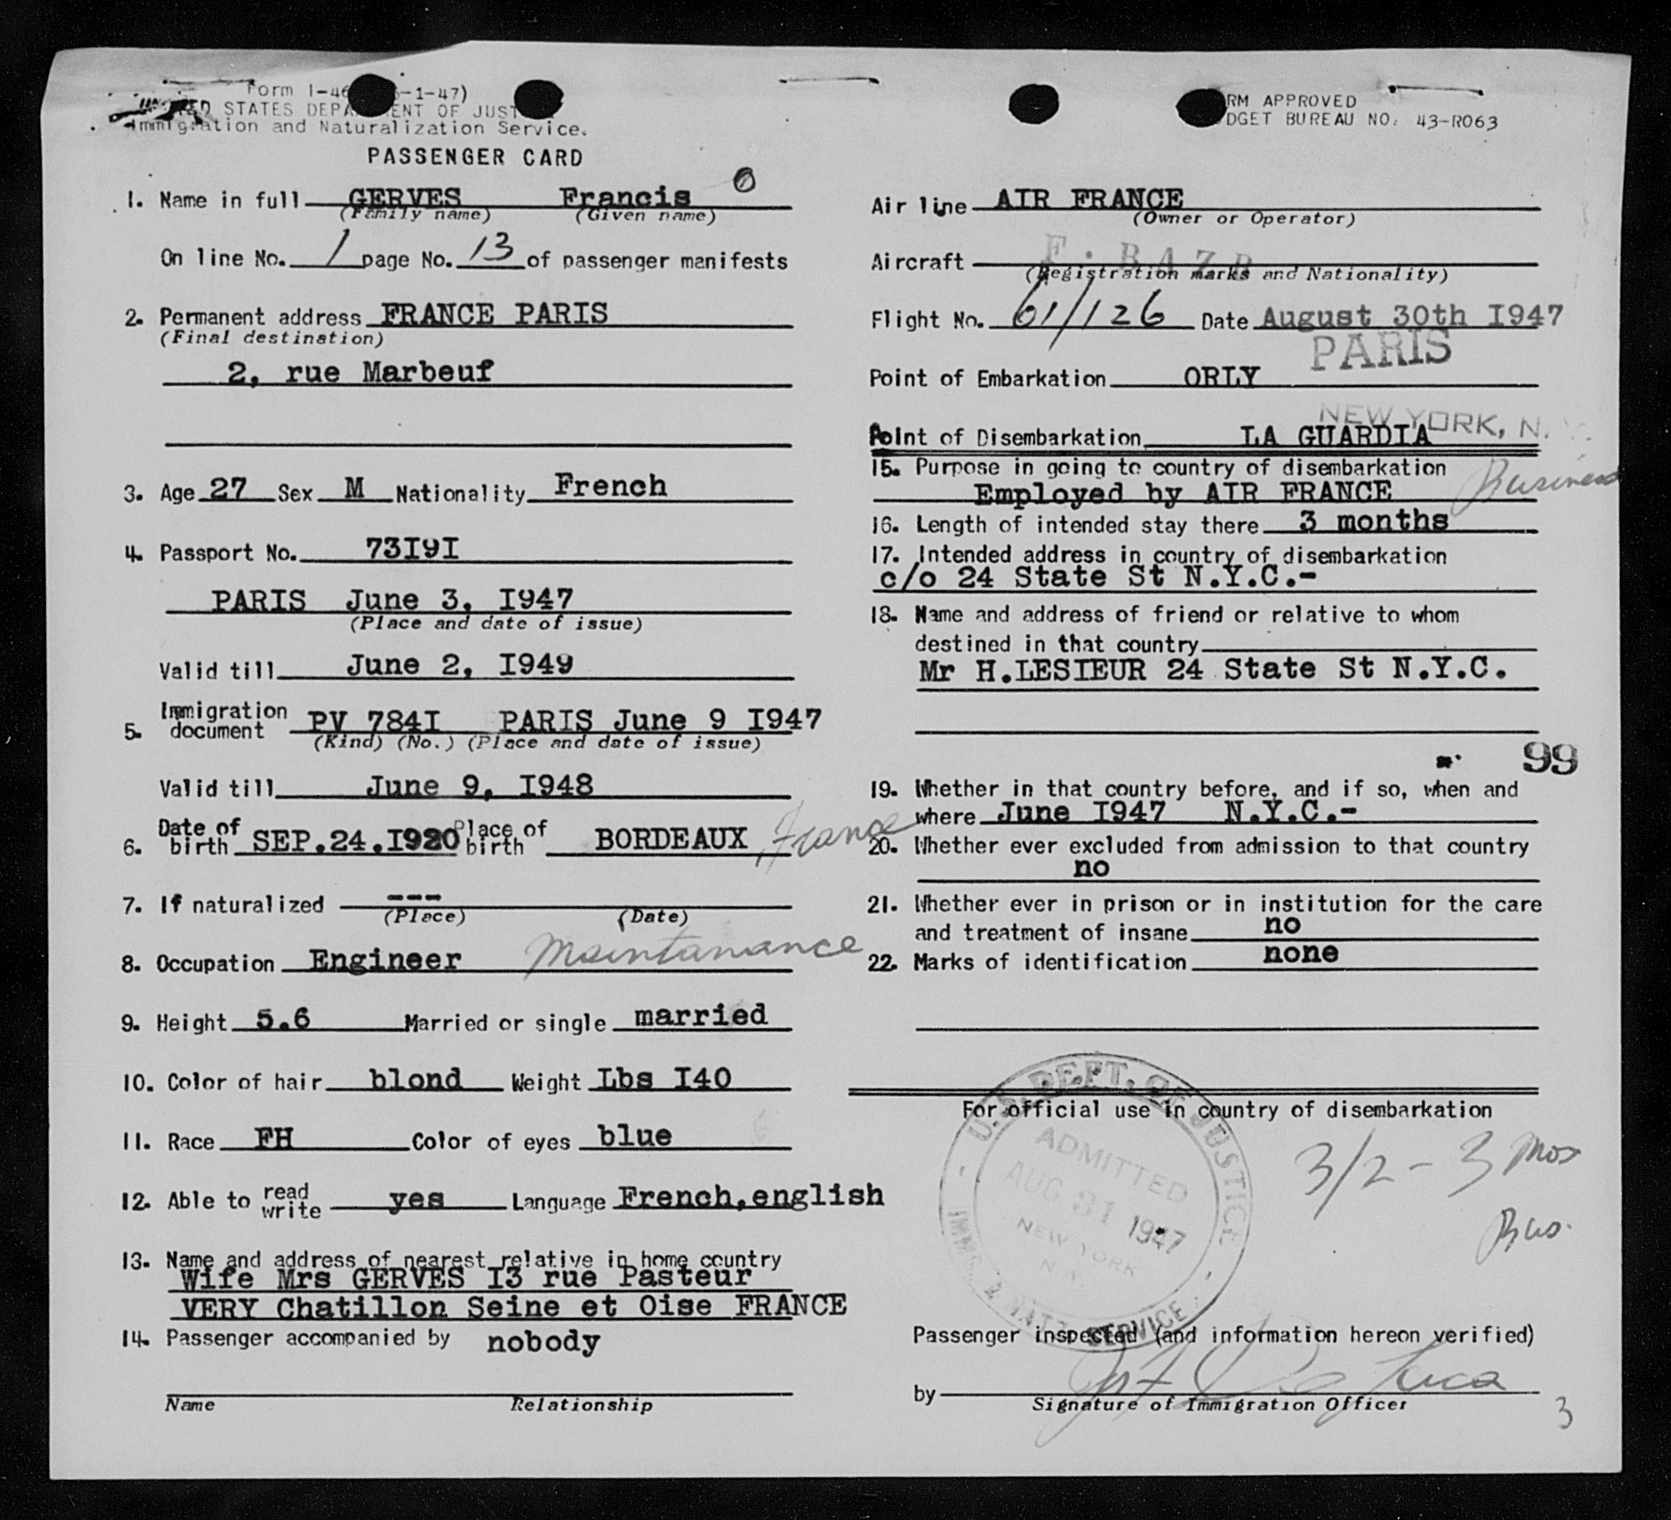 Form I-46 -1-47)
UNITED STATES DEPARTMENT OF JUSTICE
Immigration and Naturalization Service.
PASSENGER CARD
1. Name in full GERVES Francis
(Family name) (Given name)
On line No. 1 page No. 13 of passenger manifests
2. Permanent address FRANCE PARIS
(Final destination)
2, rue Marbeuf
3. Age 27 Sex M Nationality French
4. Passport No. 73I9I
PARIS June 3, I947
(Place and date of issue)
Valid till June 2, I949
5. Immigration document PV 784I PARIS June 9 I947
(Kind) (No.) (Place and date of issue)
Valid till June 9, I948
6. Date of birth SEP.24.I920 Place of birth BORDEAUX France
7. If naturalized ---
(Place) (Date)
8. Occupation Engineer Maintanance
9. Height 5.6 Married or single married
10. Color of hair blond Weight Lbs I40
11. Race FH Color of eyes blue
12. Able to read write yes Language French,english
13. Name and address of nearest relative in home country
Wife Mrs GERVES I3 rue Pasteur
VERY Chatillon Seine et Oise FRANCE
14. Passenger accompanied by nobody
Name Relationship
FORM APPROVED
BUDGET BUREAU NO. 43-R063
Air line AIR FRANCE
(Owner or Operator)
Aircraft F. BAZ
(Registration marks and Nationality)
Flight No. 61/126 Date August 30th I947
PARIS
Point of Embarkation ORLY
NEW YORK, N.
Point of Disembarkation LA GUARDIA
15. Purpose in going to country of disembarkation
Employed by AIR FRANCE Business
16. Length of intended stay there 3 months
17. Intended address in country of disembarkation
c/o 24 State St N.Y.C.-
18. Name and address of friend or relative to whom
destined in that country
Mr H.LESIEUR 24 State St N.Y.C.
99
19. Whether in that country before, and if so, when and
where June I947 N.Y.C.-
20. Whether ever excluded from admission to that country
no
21. Whether ever in prison or in institution for the care
and treatment of insane no
22. Marks of identification none
For official use in country of disembarkation
U.S. DEPT. OF JUSTICE
ADMITTED
AUG 31 1947
NEW YORK
N.Y.
IMMIG. & NATZ. SERVICE
3/2 - 3 Mos
Bus.
Passenger inspected (and information hereon verified)
by
Signature of Immigration Officer
3